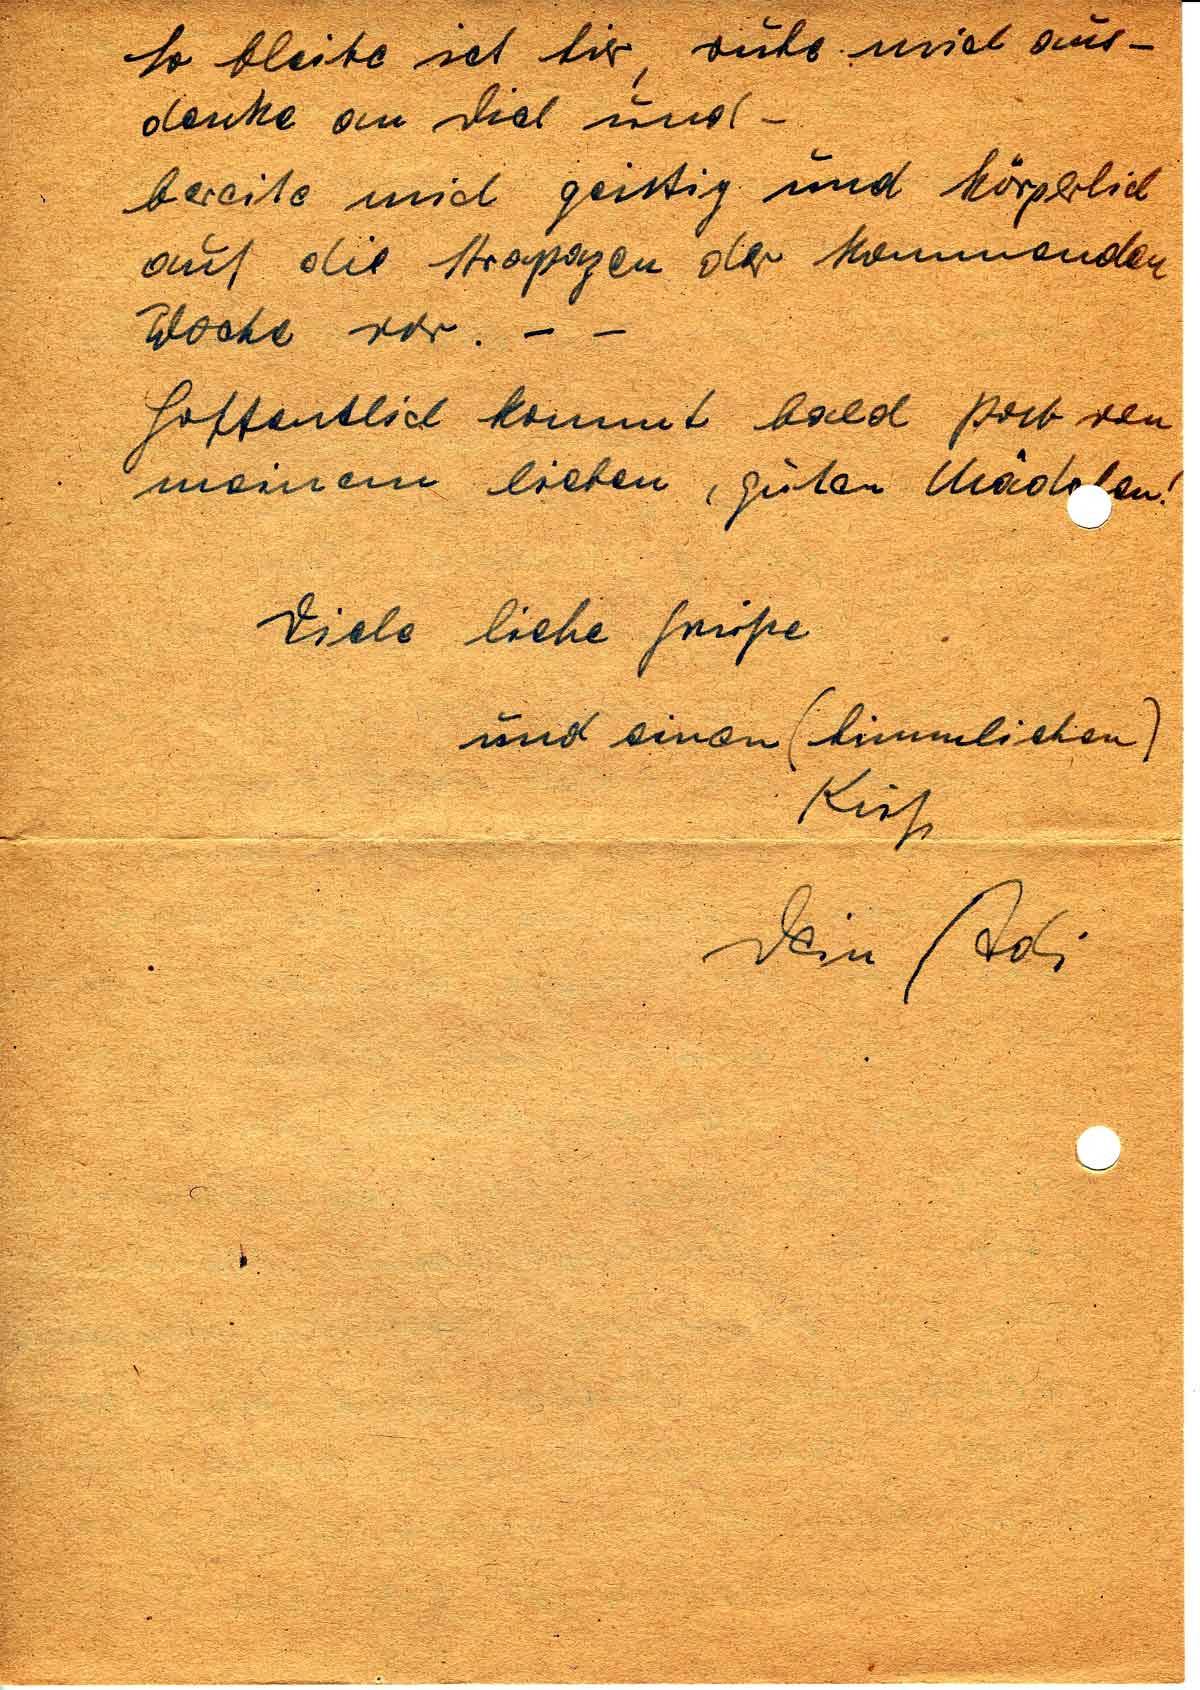 So bleibe ich hier, ruhe mich aus –
denke an Dich und –
bereite mich geistig und körperlich
auf die Strapazen der kommenden
Woche vor. – –
Hoffentlich kommt bald Post von
meinem lieben, guten Mädelen!
Viele liebe Grüße
und einen (himmlischen)
Kuß
Dein Adi